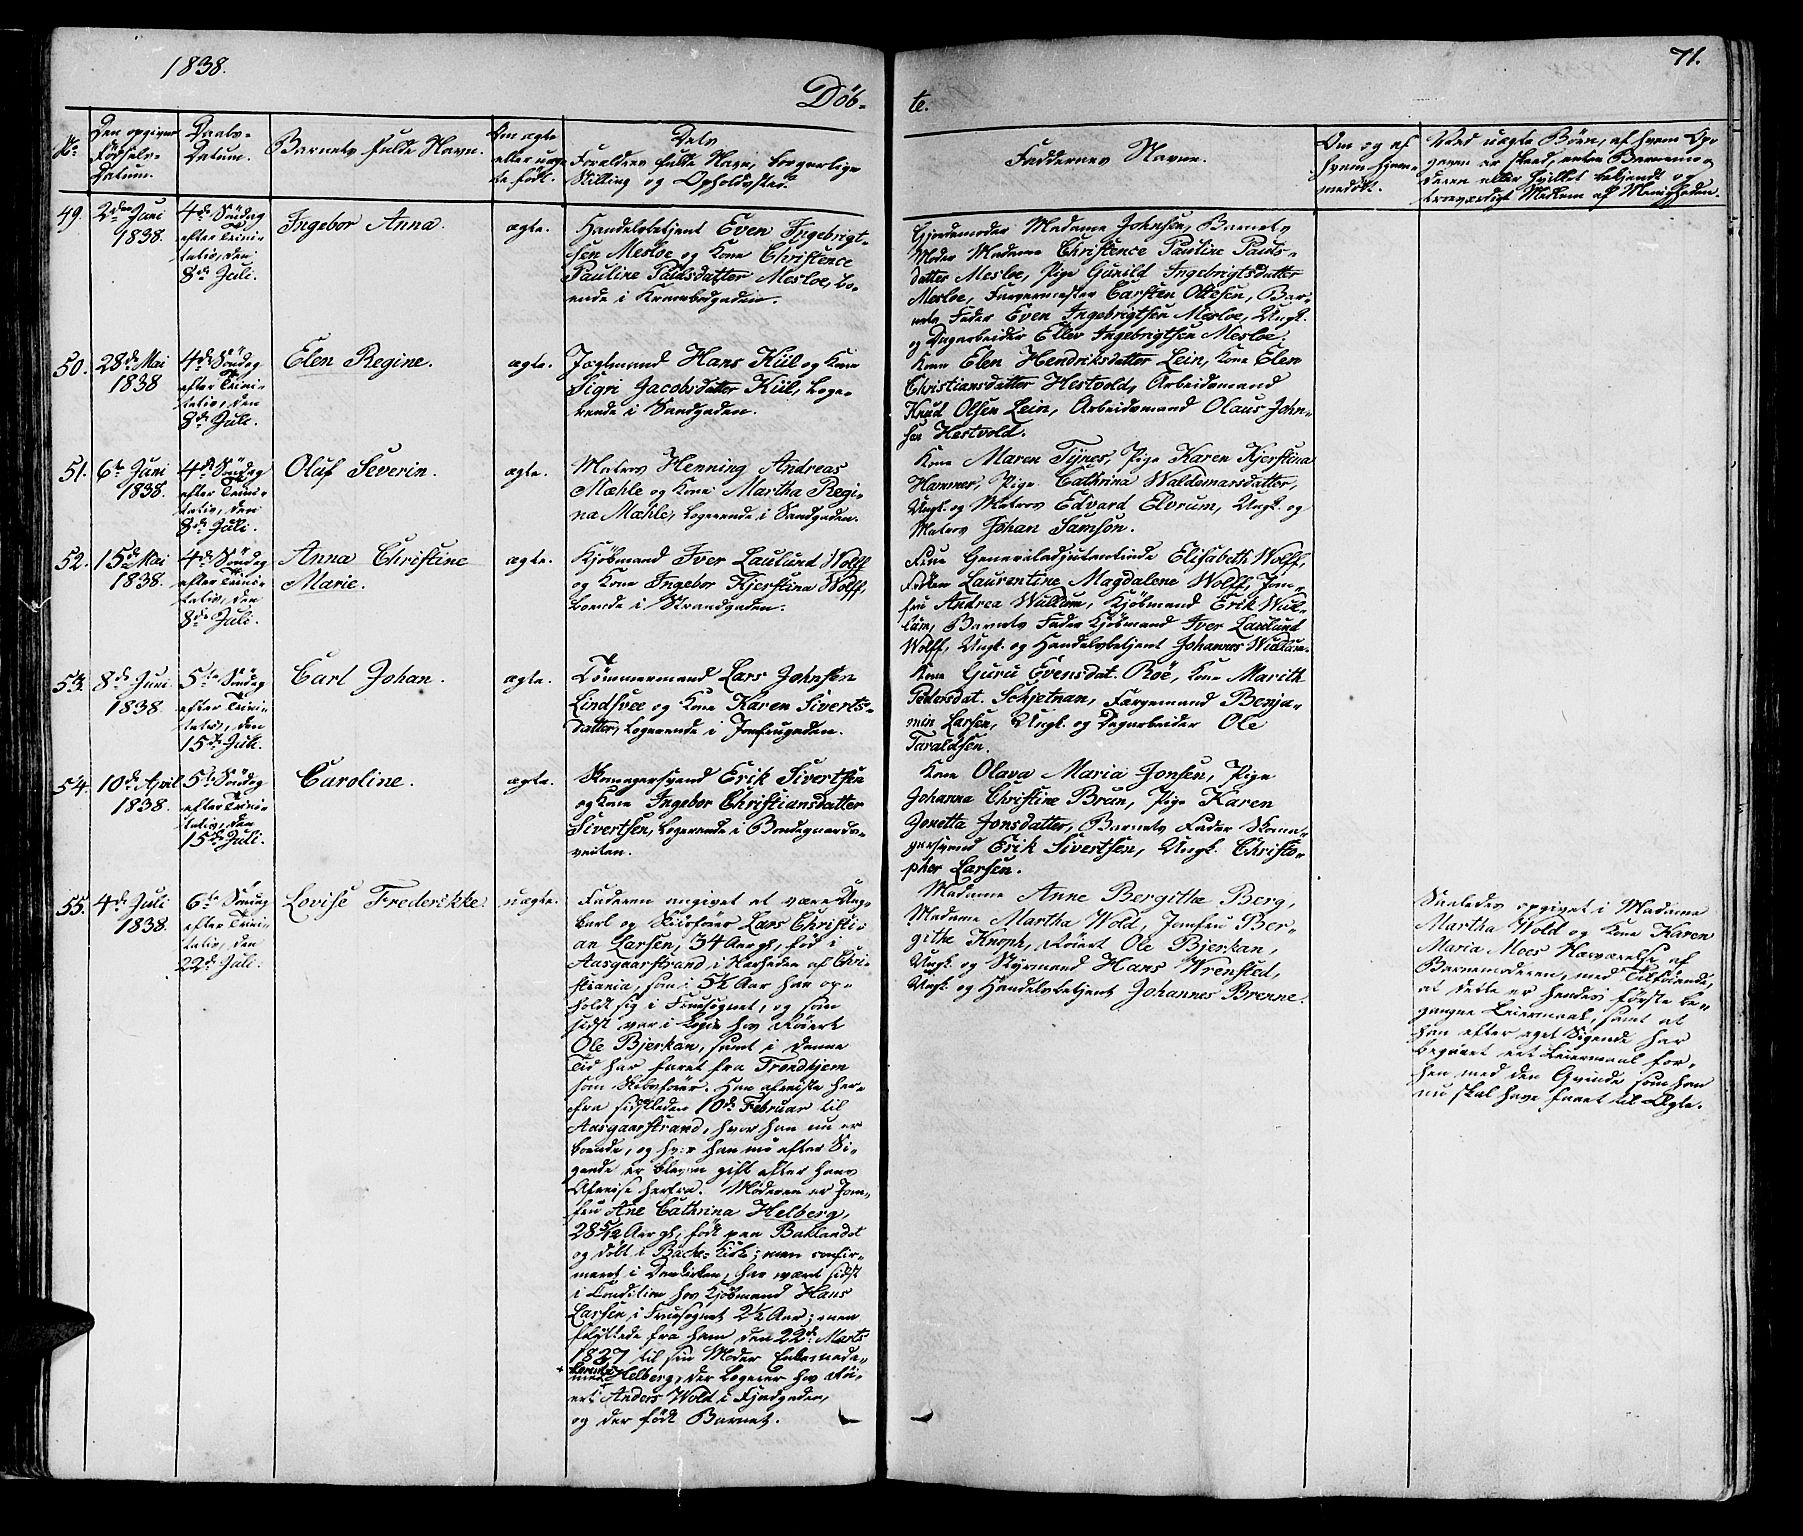 1838.
71.
Döb-
te.
No
Den opgivne
Fødsels-
Datum.
Daabs-
Datum.
Barnets fulde Navn.
Om ægte
eller uæg-
te født.
Dets
Forældres fulde Navn, borgerlige
Stilling og Opholdssted.
Faddernes Navne.
Om og af
hvem hjem-
medöbt.
Ved uægte Börn, af hvem Op-
gaven er skeed, enten Barnemo-
deren eller hvilket bekjendt og
troværdigt Medlem af Menigheden.
49.
2den Juni
1838.
4de Söndag
efter Trini-
tatis, den
8de Juli.
Ingebor Anna.
ægte.
Handelsbetjent Even Ingebrigt-
sen Mesloe og Kone Christence
Pauline Paulsdatter Mesloe, bo-
ende i Krambodgaden.
Gjordemoder Madame Johnsen, Barnets
Moder Madame Christence Pauline Pauls-
datter Mesloe, Pige Gunild Ingebrigtsdatter
Mesloe, Farvermester Carsten Ottesen, Bar-
nets Fader Even Ingebrigtsen Mesloe, Ungk.
og Dagarbeider Eller Ingebrigtsen Mesloe.
50.
28de Mai
1838
4de Söndag
efter Trini-
tatis, den
8de Juli.
Elen Regine.
ægte.
Jagtmand Hans Kiil og Kone
Sigri Jacobsdatter Kiil, Loge-
rende i Sandgaden.
Kone Elen Hendriksdatter Lein, Kone Elen
Christiansdatter Hestvold, Arbeidsmand
Knud Olsen Lein, Arbeidsmand Olaus John-
sen Hestvold.
51.
6te Juni
1838.
4de Söndag
efter Trini-
tatis, den
8de Juli.
Oluf Severin.
ægte.
Matros Henning Andreas
Mæhle og Kone Martha Regi-
na Mæhle, Logerende i Sandgaden.
Kone Maren Tynes, Pige Karen Kjerstina
Hammer, Pige Cathrina Waldemarsdatter,
Ungk. og Matros Edvard Elvrum, Ungk. og
Matros Johan Samson.
52.
15de Mai
1838.
4de Söndag
efter Trini-
tatis, den
8de Juli.
Anna Christine
Marie.
ægte.
Kjöbmand Iver Laulund Wolff
og Kone Ingebor Kjerstina Wolff,
boende i Strandgaden.
Frue Generaladjutantinde Elisabeth Wolff,
Fröken Laurentine Magdalene Wolff, Jom-
fru Andrea Wullum, Kjöbmand Erik Wul-
lum, Barnets Fader Kjöbmand Iver Laulund
Wolff, Ungk. og Handelsbetjent Johannes Wullum.
53.
8de Juni
1838.
5te Söndag
efter Trini-
tatis, den
15de Juli.
Carl Johan.
ægte.
Tömmermand Lars Johnsen
Lindsvee og Kone Karen Siverts-
datter, Logerende i Jomfrugaden.
Kone Guru Evensdat. Röe, Kone Marith
Pedersdat. Schjetnan, Færgemand Benja-
min Larsen, Ungk. og Dagarbeider Ole
Taraldsen.
54.
10de April
1838.
5te Söndag
efter Trini-
tatis, den
15de Juli.
Caroline.
ægte.
Skomagersvend Erik Sivertsen
og Kone Ingebor Christiansdatter
Sivertsen, Logerende i Bondegaards-
veiten.
Kone Olava Maria Jonsen, Pige
Johanna Christine Brun, Pige Karen
Jonetta Jonsdatter, Barnets Fader Skoma-
gersvend Erik Sivertsen, Ungk. Christo-
pher Larsen.
55.
4de Juli
1838.
6te Söndag
efter Trini-
tatis, den
22de Juli.
Lovise Frederikke.
uægte.
Faderen angivet at være Ung-
karl og Skibsförer Lars Christi-
an Larsen, 34 Aar gl., föd i
Aasgaarstrand i Nærheden af Chri-
stiania, som i 5½ Aar har op-
holdt sig i Fruesognet, og som
sidst var i Logie hos Röiert
Ole Bjerkan, samt i denne
Tid har faret fra Trondhjem
som Skibsförer. Han afreiste her-
fra sidstleden 10de Februar til
Aasgaarstrand, hvor han nu er
boende, og hvor han nu efter Si-
gende er bleven gift efter hans
Afreise herfra. Moderen er Jom-
fru Ane Cathrina Helberg,
28 5/12 Aar gl., födt paa Baklandet
og döbt i Bache-Kirke; men confir-
meret i Domkirken, har været sidst
i Condition hos Kjöbmand Hans
Larsen, i Fruesognet 2½ Aar; men
flyttede fra ham den 22de Marts
1837 til sin Moder Enkemada-
me Helberg, der Logerer hos Röi-
ert Anders Wold i Fjordgaden,
og der födt Barnet.
Madame Anne Bergitha Berg,
Madame Martha Wold, Jomfru Ber-
githe Knoph, Röiert Ole Bjerkan,
Ungk. og Styrmand Hans Wrensted,
Ungk. og Handelsbetjent Johannes Brenne.
Saaledes opgivet i Madame
Martha Wold og Kone Karen
Maria Moes Nærværelse af
Barnemoderen, med Tilföiende,
at dette er hendes förste be-
gangne Leiermaal, samt at
han efter eget Sigende har
begaaet eet Leiermaal för-
hen med den Qvinde som han
nu skal have faaet til Ægte.